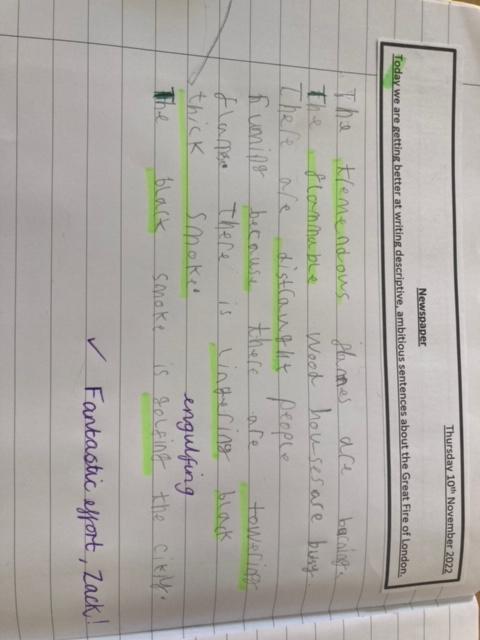 Thursday 10th November 2022
Newspaper
Today we are getting better at writing descriptive, ambitious sentences about the Great Fire of London.
The tremendous flames are burning.
The flammable wood houses are busy.
There are distraught people
running because there are towering
flames. There is lingering black
thick smoke.
engulfing
The black smoke is golfing the city.
✓ Fantastic effort, Zack!